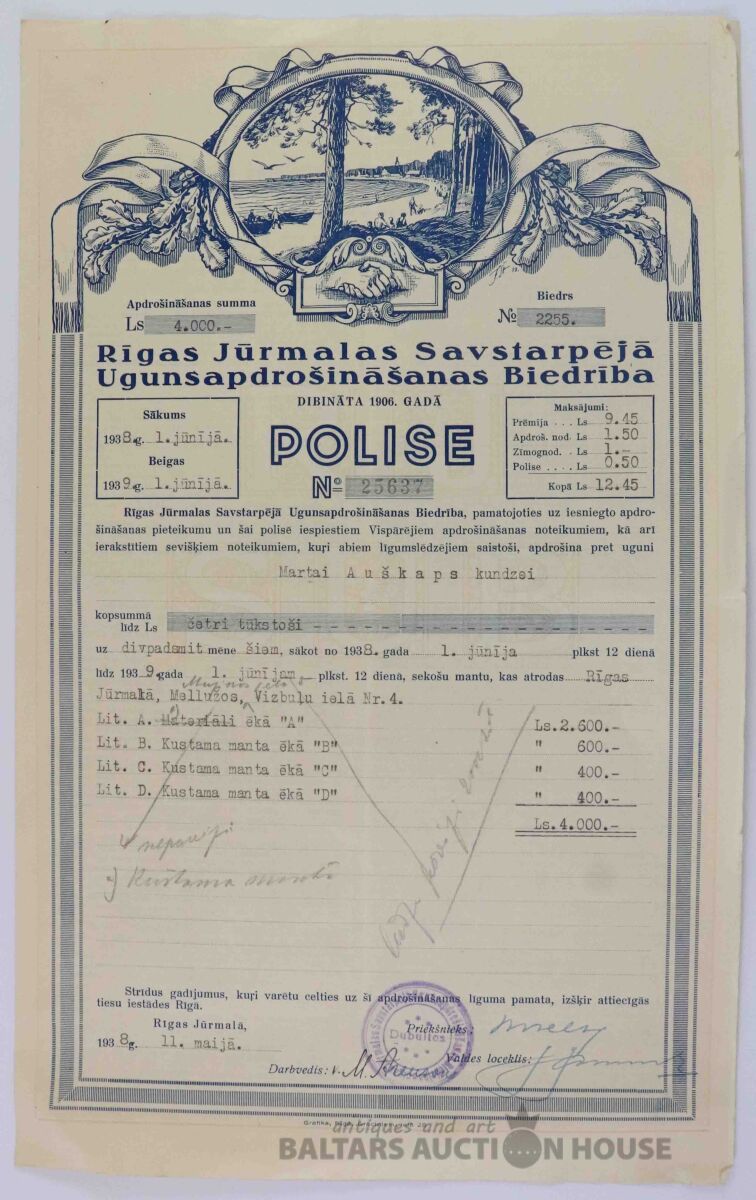 Apdrošināšanas summa
Ls 4.000.-
Biedrs
№ 2255.
Rīgas Jūrmalas Savstarpējā
Ugunsapdrošināšanas Biedrība
DIBINĀTA 1906. GADĀ
Sākums
1938.g. 1.jūnijā.
Beigas
1939.g. 1.jūnijā.
POLISE
№ 25637
Maksājumi:
Prēmija . . . Ls 9.45
Apdroš. nod. Ls 1.50
Zīmognod. . Ls 1.-
Polise . . . . Ls 0.50
Kopā Ls 12.45
Rīgas Jūrmalas Savstarpējā Ugunsapdrošināšanas Biedrība, pamatojoties uz iesniegto apdro-
šināšanas pieteikumu un šai polisē iespiestiem Vispārējiem apdrošināšanas noteikumiem, kā arī
ierakstītiem sevišķiem noteikumiem, kuŗi abiem līgumslēdzējiem saistoši, apdrošina pret uguni
Martai Auškaps kundzei
kopsummā
līdz Ls četri tūkstoši
uz divpadsmit mēne šiem, sākot no 1938. gada 1. jūnija plkst 12 dienā
līdz 1939.gada 1. jūnijam plkst. 12 dienā, sekošu mantu, kas atrodas Rīgas
Jūrmalā, Mellužos, Vizbuļu ielā Nr.4.
Lit. A. Materiāli ēkā "A" Ls.2.600.-
Lit. B. Kustama manta ēkā "B" " 600.-
Lit. C. Kustama manta ēkā "C" " 400.-
Lit. D. Kustama manta ēkā "D" " 400.-
Ls.4.000.-
Kustama manta
Strīdus gadījumus, kuŗi varētu celties uz šī apdrošināšanas līguma pamata, izšķir attiecīgās
tiesu iestādes Rīgā.
Rīgas Jūrmalā,
1938g. 11. maijā.
Dubultos
Priekšnieks:
Valdes loceklis:
Darbvedis:
antiques and art
BALTARS AUCTION HOUSE